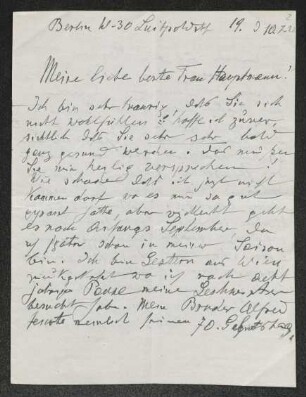 Berlin W-30 Luitpoldstr 19. 3
Meine liebe beste Frau Hauptmann!
Ich bin sehr traurig, daß Sie sich
nicht wohlfühlen u hoffe ich zuver-
sichtlich daß Sie sehr sehr bald
ganz gesund werden. Das müssen
Sie mir heilig versprechen!
Wie schade daß ich jetzt nicht
kommen darf wo es mir so gut
gepasst hätte, aber vielleicht geht
es noch Anfangs September, da
ich später schon in meiner Saison
bin. Ich bin gestern aus Wien
zurückgekehrt wo ich nach acht
jähriger Pause meine Geschwister
besucht habe. Mein Bruder Alfred
feierte nämlich seinen 70. Geburtstag